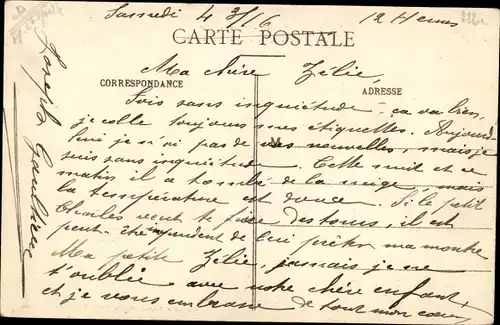 Samedi 4 3/16 12 Heures
CARTE POSTALE
Ma chère Zélie,
CORRESPONDANCE
ADRESSE
Sois sans inquiétude ça va bien,
je colle toujours mes étiquettes. Aujourd'
hui je n'ai pas de vos nouvelles, mais je
suis sans inquiétude. Cette nuit et ce
matin il a tombé de la neige, mais
la température est douce. Si le petit
Charles veut te faire des tours, il est
peut-être de lui prêter ma montre
Ma petite Zélie, jamais je ne
t'oublie avec notre chère enfant,
et je vous embrasse de tout mon cœur
Joseph